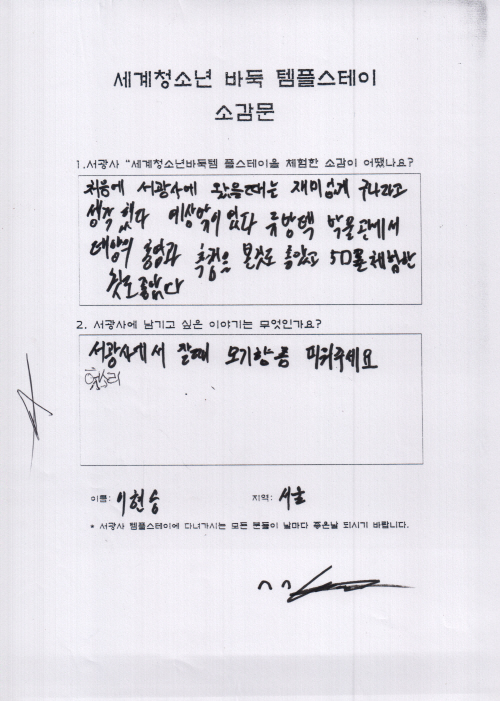 세계청소년 바둑 템플스테이
소감문
1.서광사 "세계청소년바둑템 플스테이을 체험한 소감이 어땠나요?
처음에 서광사에 왔을때는 재미없게 구나라고
생각 했다 예상밖이 었다 류방택 박물관에서
태양의 흑점과 홍염을 본것도 좋았고 5D를 체험한
것도 좋았다
2. 서광사에 남기고 싶은 이야기는 무엇인가요?
서광사에서 잘때 모기향좀 피워주세요
이름: 이현승 지역: 서울
* 서광사 템플스테이에 다녀가시는 모든 분들이 날마다 좋은날 되시기 바랍니다.
^^